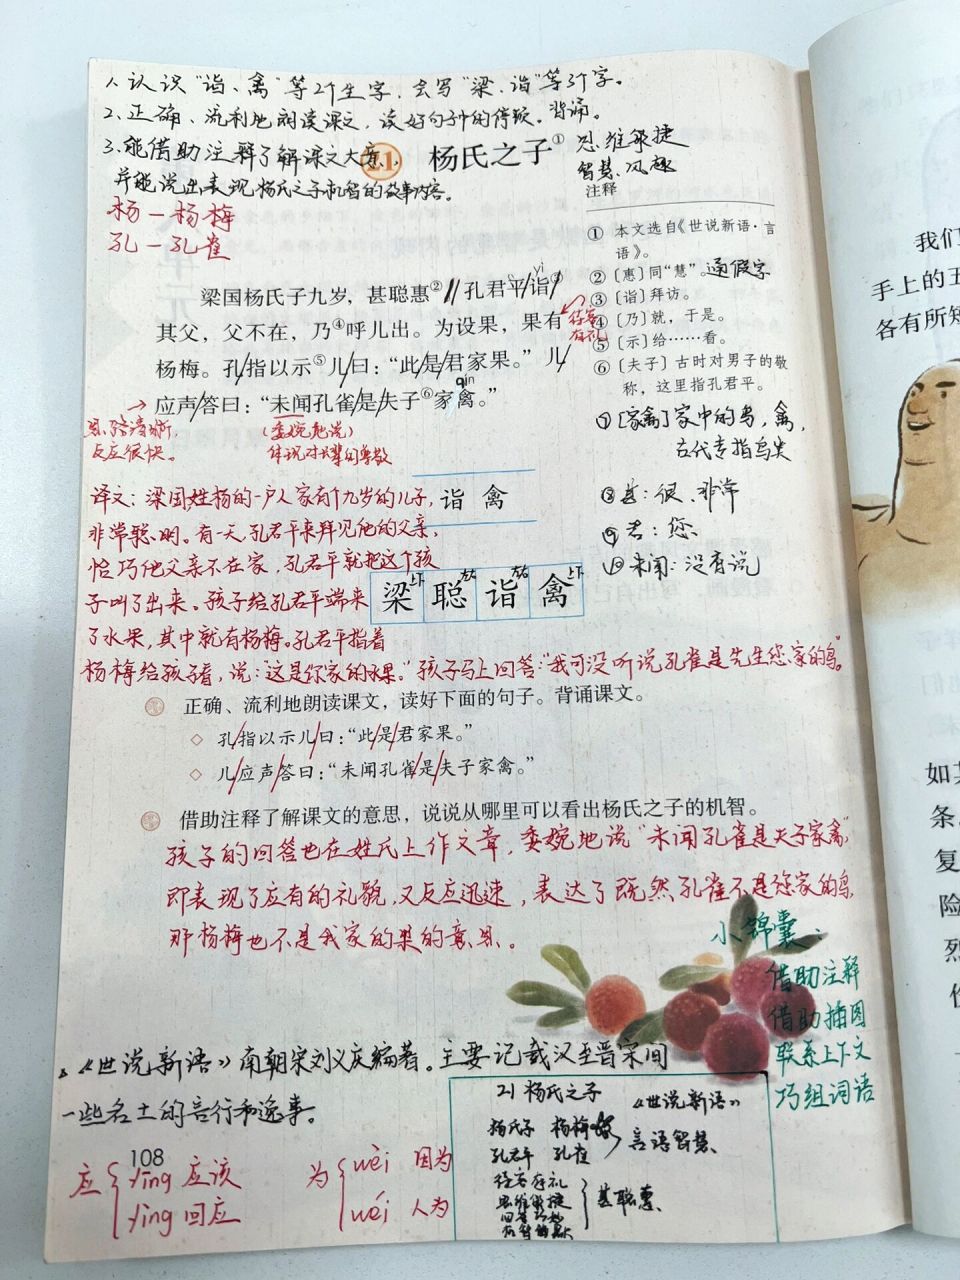 1、认识“诣、禽”等2个生字，会写“梁、诣”等3个字。
2、正确、流利地朗读课文，读好句子中的停顿。背诵。
3、能借助注释了解课文大意，
并能说出表现杨氏之子机智的故事内容。
21 杨氏之子①
思维敏捷
智慧、风趣
杨—杨梅
孔—孔雀
梁国杨氏子九岁，甚聪惠②//孔君平/诣③
yì
其父，父不在，乃④呼儿出。为设果，果有
待客
有礼
杨梅。孔/指以示⑤儿/曰：“此/是/君家果。”儿/
qín
应声/答曰：“未闻孔雀/是/夫子⑥家禽。”
思路清晰，
反应很快。
（委婉地说）
体现对长辈的尊敬
注释
① 本文选自《世说新语·言
语》。
②〔惠〕同“慧”。通假字
③〔诣〕拜访。
④〔乃〕就，于是。
⑤〔示〕给……看。
⑥〔夫子〕古时对男子的敬
称，这里指孔君平。
⑦〔家禽〕家中的鸟，禽，
古代专指鸟类
⑧甚：很、非常
⑨君：您
⑩未闻：没有说
诣 禽
梁 聪 诣 禽
上下 左右 左右 上下
译文：梁国姓杨的一户人家有个九岁的儿子，
非常聪明。有一天，孔君平来拜见他的父亲，
恰巧他父亲不在家，孔君平就把这个孩
子叫了出来。孩子给孔君平端来
了水果，其中就有杨梅。孔君平指着
杨梅给孩子看，说：“这是你家的水果。”孩子马上回答：“我可没听说孔雀是先生您家的鸟。”
正确、流利地朗读课文，读好下面的句子。背诵课文。
◇ 孔/指以示儿/曰：“此/是/君家果。”
◇ 儿/应声/答曰：“未闻孔雀/是/夫子家禽。”
借助注释了解课文的意思，说说从哪里可以看出杨氏之子的机智。
孩子的回答也在姓氏上作文章，委婉地说“未闻孔雀是夫子家禽”，
即表现了应有的礼貌，又反应迅速，表达了既然孔雀不是你家的鸟，
那杨梅也不是我家的果的意思。
小锦囊：
借助注释
借助插图
联系上下文
巧组词语
《世说新语》南朝宋刘义庆编著。主要记载汉至晋宋间
一些名士的言行和逸事。
108
应 { yīng 应该
yìng 回应
为 { wèi 因为
wéi 人为
21 杨氏之子
《世说新语》
杨氏子 杨梅
孔君平 孔雀
言语智慧
待客有礼
思维敏捷
甚聪惠